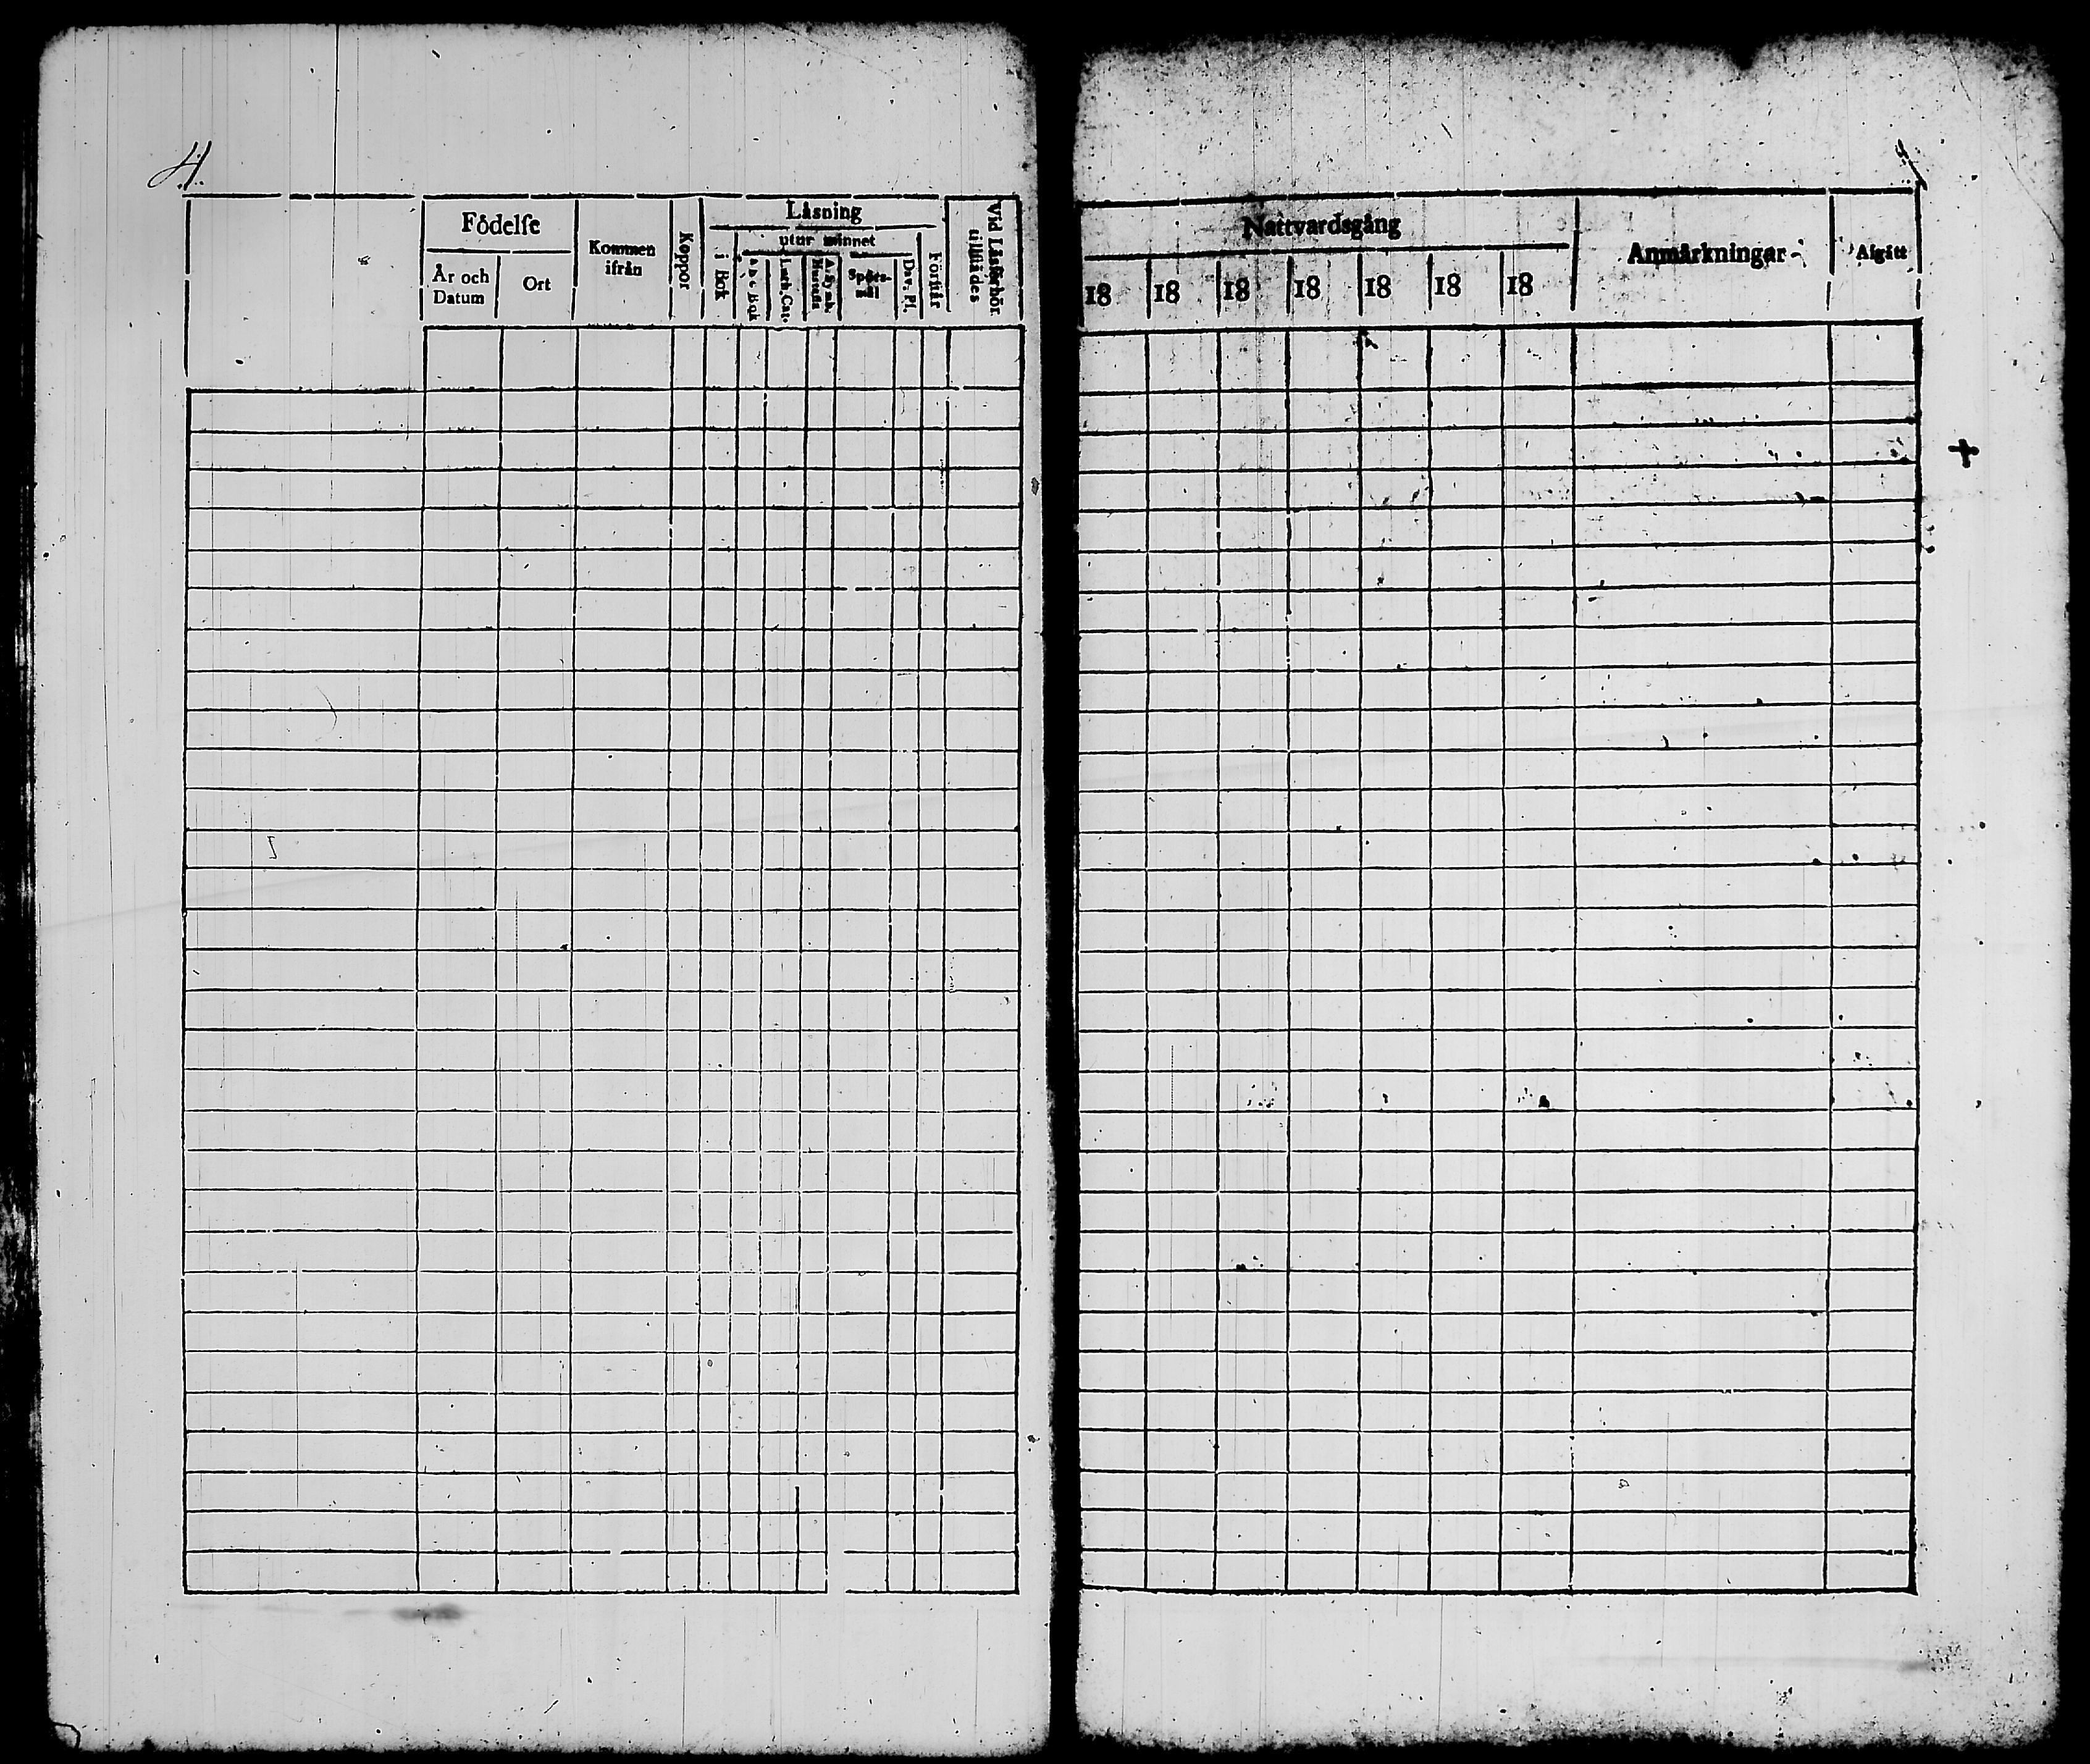 4.
Födelse
År och
Datum
Ort
Kommen
ifrån
Koppor
Läsning
i Bok
utur minnet
A b c Bok
Luth. Cat.
Hustafla
Spörs-
mål
Dav. Ps.
Förstår
Vid Läsförhör
tillstädes
Nattvardsgång
18 18 18 18 18 18 18
Anmärkningar
Afgått